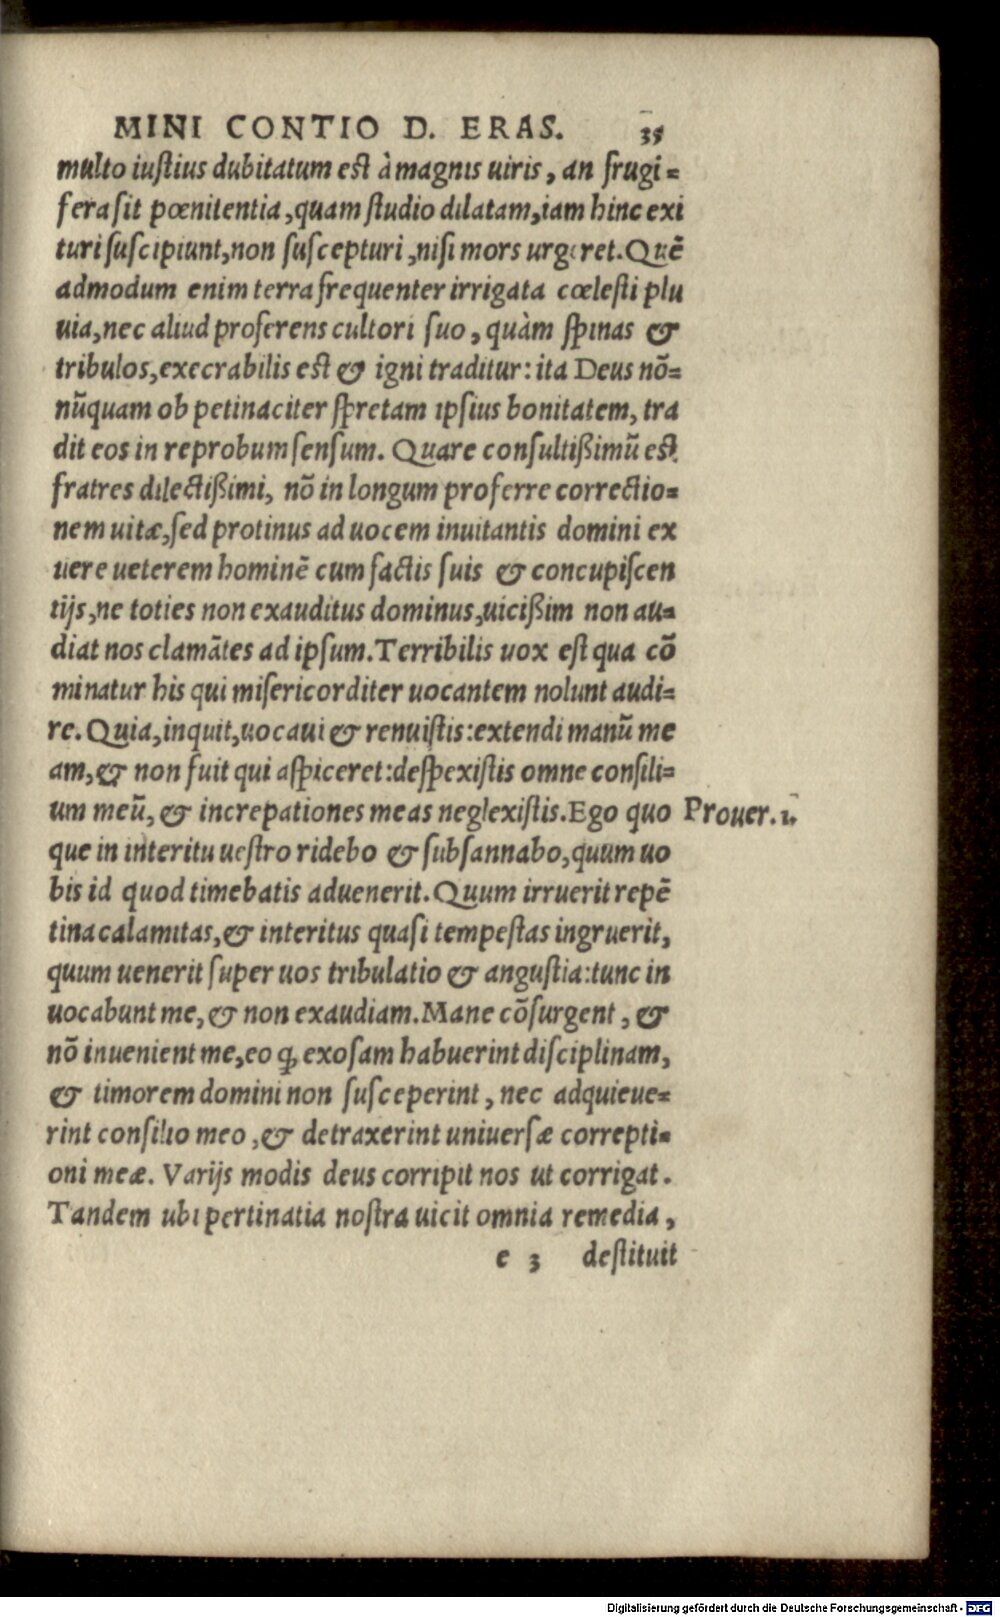 MINI CONTIO D. ERAS. 35
multo iuſtius dubitatum eſt à magnis uiris, an frugi=
fera ſit pœnitentia, quam ſtudio dilatam, iam hinc exi
turi ſuſcipiunt, non ſuſcepturi, niſi mors urgeret. Quē
admodum enim terra frequenter irrigata cœleſti plu
uia, nec aliud proferens cultori ſuo, quàm ſpinas &
tribulos, execrabilis eſt & igni traditur: ita Deus nō=
nūquam ob petinaciter ſpretam ipſius bonitatem, tra
dit eos in reprobum ſenſum. Quare conſultißimū eſt
fratres dilectißimi, nō in longum proferre correctio=
nem uitæ, ſed protinus ad uocem inuitantis domini ex
uere ueterem hominē cum factis ſuis & concupiſcen
tijs, ne toties non exauditus dominus, uicißim non au=
diat nos clamātes ad ipſum. Terribilis uox eſt qua cō
minatur his qui miſericorditer uocantem nolunt audi=
re. Quia, inquit, uocaui & renuiſtis: extendi manū me
am, & non fuit qui aſpiceret: deſpexiſtis omne conſili=
um meū, & increpationes meas neglexiſtis. Ego quo Prouer. 1.
que in interitu ueſtro ridebo & ſubſannabo, quum uo
bis id quod timebatis aduenerit. Quum irruerit repē
tina calamitas, & interitus quaſi tempeſtas ingruerit,
quum uenerit ſuper uos tribulatio & anguſtia: tunc in
uocabunt me, & non exaudiam. Mane cōſurgent, &
nō inuenient me, eo ꝙ exoſam habuerint diſciplinam,
& timorem domini non ſuſceperint, nec adquieue=
rint conſilio meo, & detraxerint uniuerſæ correpti=
oni meæ. Varijs modis deus corripit nos ut corrigat.
Tandem ubi pertinatia noſtra uicit omnia remedia,
e 3 deſtituit
Digitalisierung gefördert durch die Deutsche Forschungsgemeinschaft - DFG